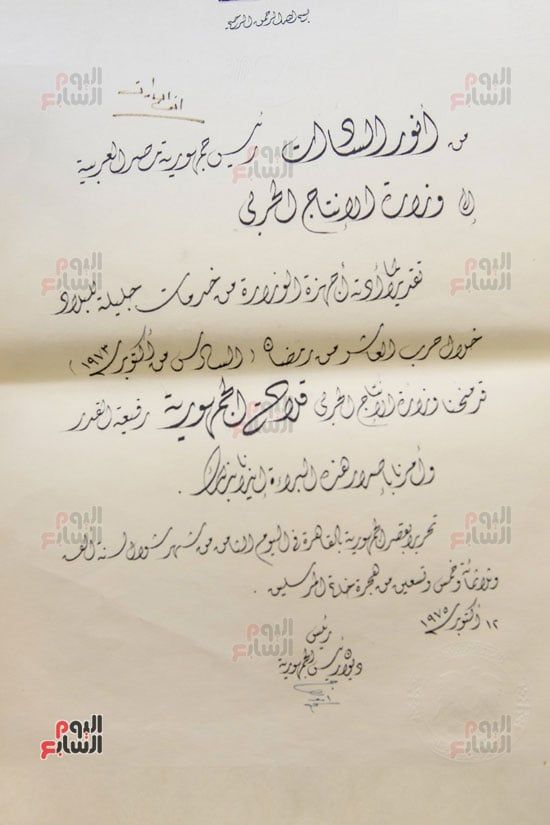 بسم الله الرحمن الرحيم
أنور السادات
من أنور السادات رئيس جمهورية مصر العربية
إلى وزارة الإنتاج الحربى
تقديرًا لما أدته أجهزة الوزارة من خدمات جليلة للبلاد
خلال حرب العاشر من رمضان (السادس من أكتوبر ١٩٧٣)
قد منحنا وزارة الإنتاج الحربى قلادة الجمهورية رفيعة القدر
وأمرنا بإصدار هذه البراءة إيذانا بذلك .
تحريرا بقصر الجمهورية بالقاهرة فى اليوم الثامن من شهر شوال سنة ألف
وثلاثمائة وخمس وتسعين من هجرة خاتم المرسلين .
١٢ أكتوبر ١٩٧٥
رئيس
ديوان رئيس الجمهورية
اليوم السابع